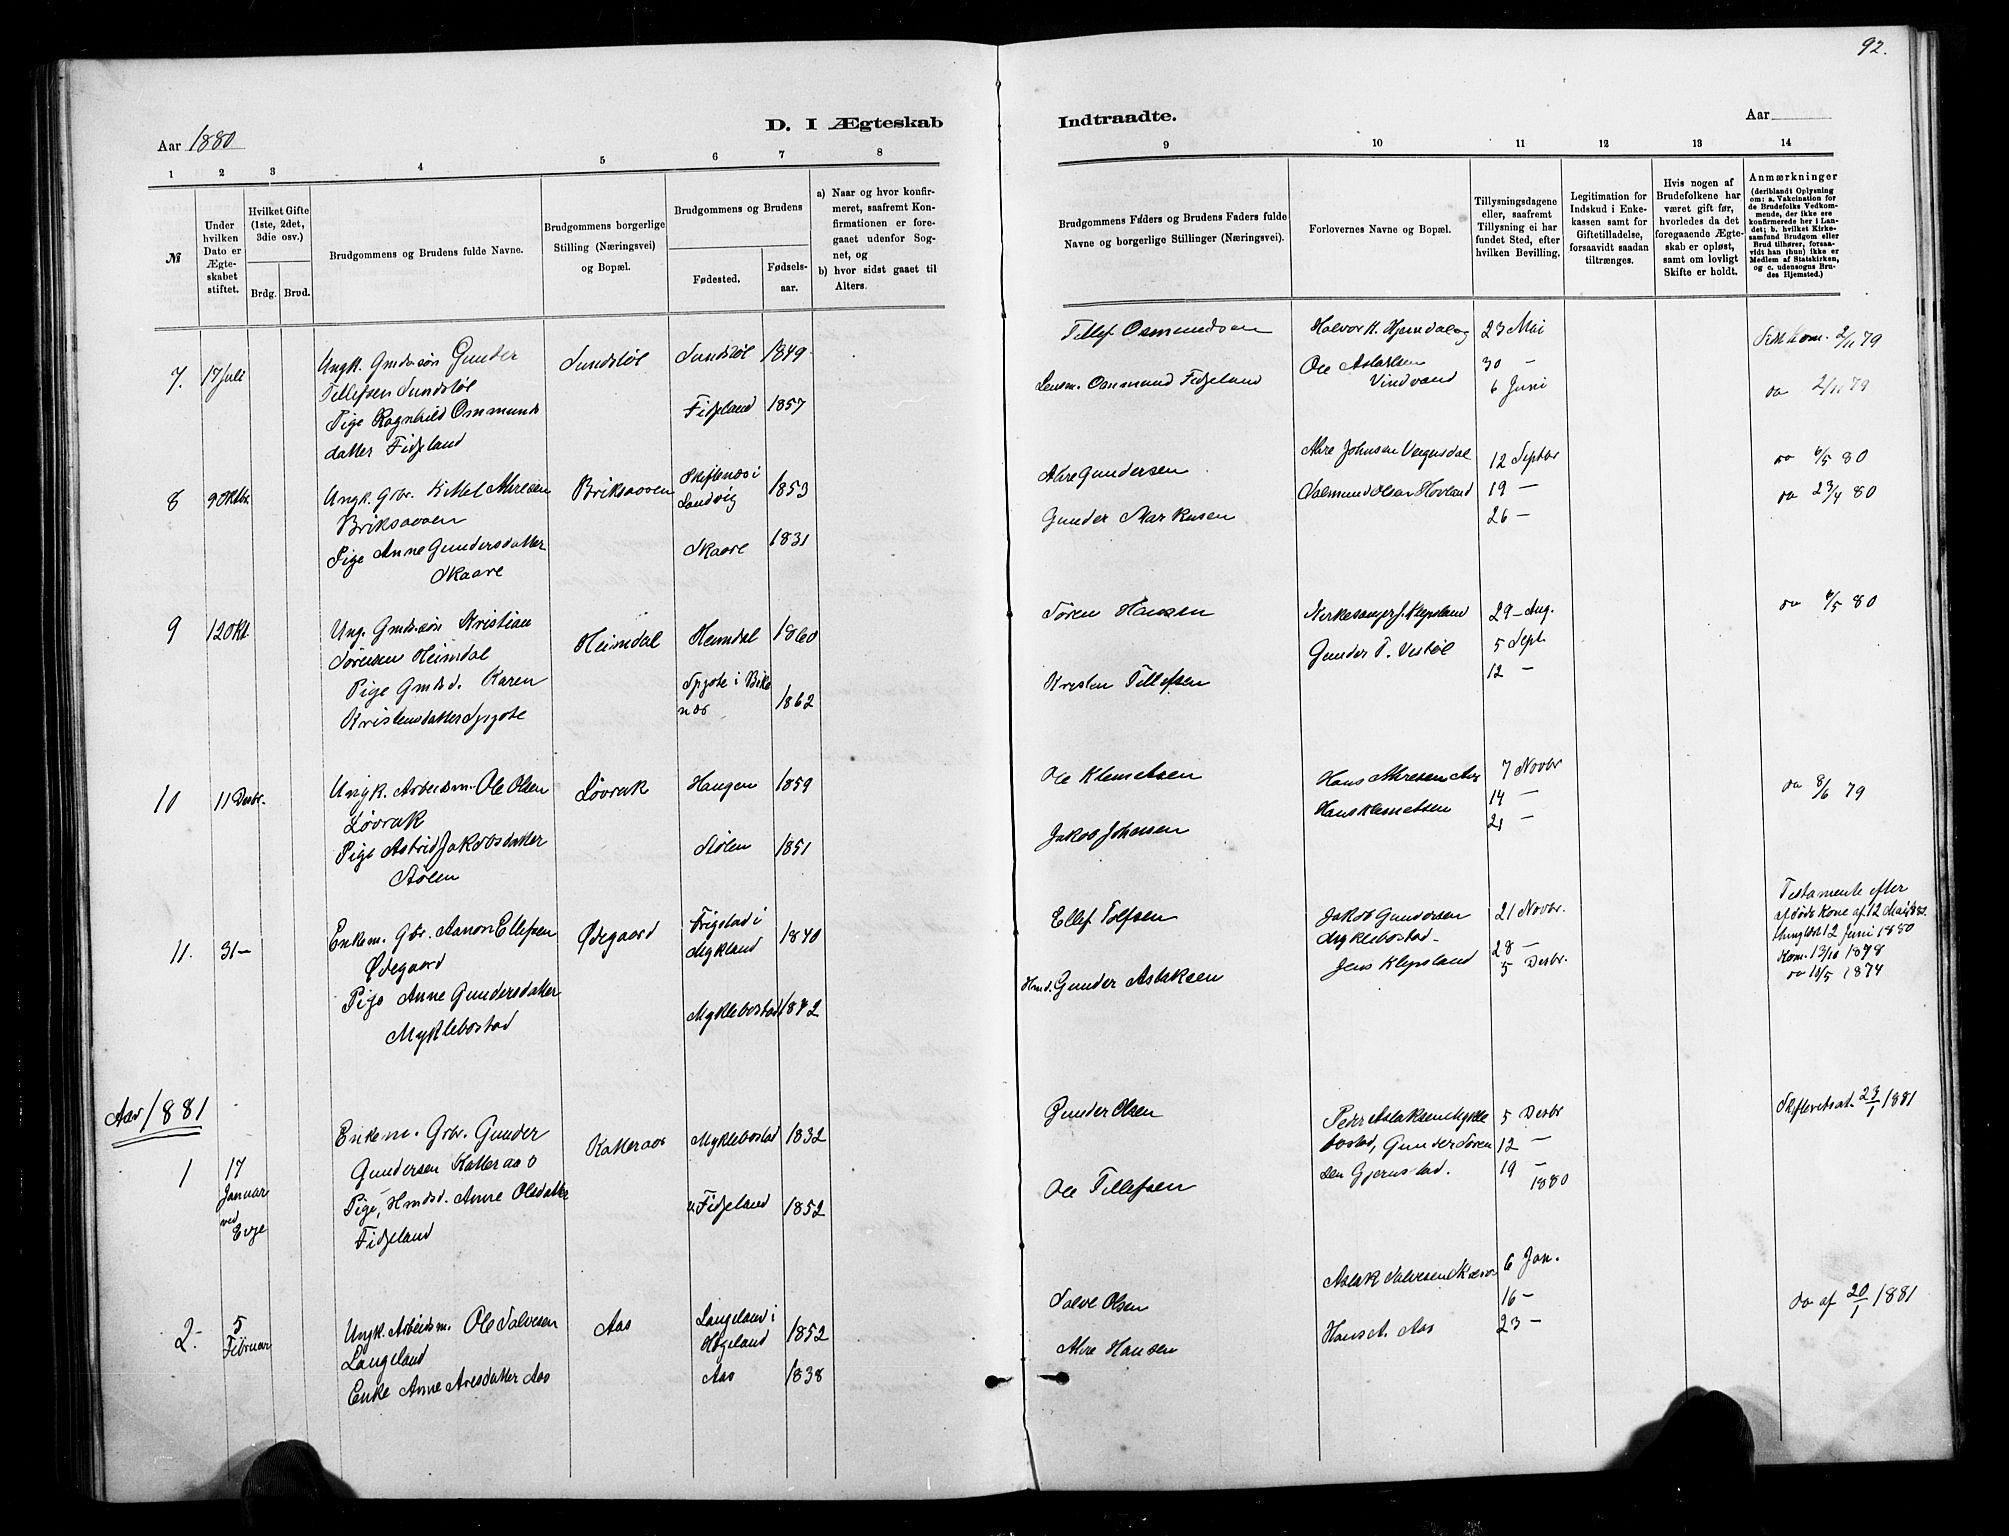 92.
D. I Ægteskab
Indtraadte.
Aar 1880
Aar
1 2 3 4 5 6 7 8
9 10 11 12 13 14
№
Under hvilken Dato er Ægteskabet stiftet.
Hvilket Gifte (1ste, 2det, 3die osv.)
Brdg. Brud.
Brudgommens og Brudens fulde Navne.
Brudgommens borgerlige Stilling (Næringsvei) og Bopæl.
Brudgommens og Brudens
Fødested.
Fødselsaar.
a) Naar og hvor konfirmeret, saafremt Konfirmationen er foregaaet udenfor Sognet, og
b) hvor sidst gaaet til Alters.
Brudgommens Faders og Brudens Faders fulde Navne og borgerlige Stillinger (Næringsvei).
Forlovernes Navne og Bopæl.
Tillysningsdagene eller, saafremt Tillysning ei har fundet Sted, efter hvilken Bevilling.
Legitimation for Indskud i Enkekassen samt for Giftetilladelse, forsaavidt saadan tiltrænges.
Hvis nogen af Brudefolkene har været gift før, hvorledes da det foregaaende Ægteskab er opløst, samt om lovligt Skifte er holdt.
Anmærkninger (deriblandt Oplysning om: a. Vakcination for de Brudefolks Vedkommende, der ikke ere konfirmerede her i Landet; b. hvilket Kirkesamfund Brudgom eller Brud tilhører, forsaavidt han (hun) ikke er Medlem af Statskirken, og c. udensogns Brudes Hjemsted.)
7. 17 Juli
Ungk. Gmdssøn Gunder
Tellefsen Sundstøl
Pige Ragnhild Ommunds
datter Fidjeland
Sundstøl
Sundstøl 1849
Fidjeland 1857
Tellef Osmundsen
Lensm. Osmund Fidjeland
Halvor K. Hjemdal og
Ole Aslaksen
Vindvand
23 Mai
30 –
6 Juni
Sidst kom. 2/11 79
do 2/11 79
8 9 Oktbr.
Ungk. Gbr. Kittel Atresen
Briksaaven
Pige Anne Gundersdatter
Skaare
Briksaaven
Skiftenæs i
Landvig 1853
Skaare 1831
Atre Gundersen
Gunder Markusen
Atre Johnsen Vegusdal
Salmund Olsen Hovland
12 Septbr
19 –
26 –
do 6/5 80
do 23/4 80
9 12 Okt.
Ung. Gmdssøn Kristian
Sørensen Heimdal
Pige Gmdsd. Karen
Kristensdatter
Heimdal
Heimdal 1860
1862
Søren Hansen
Kristen Tellefsen
Kirkesanger J. Klepsland
Gunder T. Vestøl
29 – Aug.
5 Sept.
12 –
do 6/5 80
10 11 Desbr.
Ungk. Arbeidsm. Ole Olsen
Løvrak
Pige Astrid Jakobsdatter
Stølen
Løvrak
Haugen 1859
Stølen 1851
Ole Klemetsen
Jakob Johnsen
Hans Atresen Aas
Hans Klemetsen
7 Novbr
14 –
21 –
do 8/6 79
11. 31 –
Enkem. Gbr. Aanon Ellefsen
Ødegaard
Pige Anne Gundersdatter
Myklebostad
Ødegaard
Frigstad i
Mykland 1840
Myklebostad 1842
Ellef Tolfsen
Hmd. Gunder Aslaksen
Jakob Gundersen
Myklebostad –
Jens Klepsland
21 Novbr.
28 –
5 Desbr.
Testamente efter
afdøde Kone af 12 Mai
thinglæst 12 Juni 1880
Kom. 13/10 1878
do 18/5 1874
Aar 1881
1 17
Januar
ved
Evje
Enkem. Gbr. Gunder
Gundersen Katteraas
Pige, Hmdsd. Anne Olsdatter
Fidjeland
Katteraas
Myklebostad 1832
Fidjeland 1852
Gunder Olsen
Ole Tellefsen
Peder Aslaksen Mykle
bostad, Gunder Søren
sen Gjerustad.
5 Desbr
12 –
19 –
1880
Skifteretsat. 23/1 1881
2. 5
Februar
Ungk. Arbeidsm. Ole Salvesen
Langeland
Enke Anne Aresdatter Aas
Aas
Langeland i
Høgeland 1852
Aas 1838
Salve Olsen
Atre Hansen
Aslak Salvesen
Hans A. Aas
6 Jan.
16 –
23 –
do af 20/1 1881